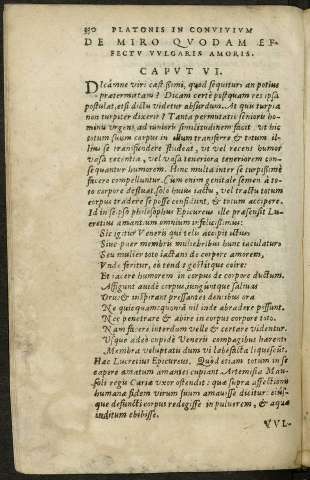 330 PLATONIS IN CONVIVIVM
DE MIRO QVODAM EF-
FECTV VVLGARIS AMORIS.
CAPVT VI.
Dicámne viri castissimi, quod sequitur: an potius
prætermittam? Dicam certè postquam res ipsa
postulat, etsi dictu videtur absurdum. At quis turpia
non turpiter dixerit? Tanta permutatio seniori ho-
mini vrgens ad iunioris similitudinem facit vt hic
totum suum corpus in illum transferre & totum il-
lius in se transfundere studeat, vt vel recens humor
vasa recentia, vel vasa teneriora teneriorem con-
sequantur humorem. Hinc multa inter se turpissimè
facere compelluntur. Cum enim genitale semen à to-
to corpore defluat, solo huius iactu, vel tractu totum
corpus tradere se posse confidunt, & totum accipere.
Id in seipso philosophus Epicureus ille præsensit Lu-
cretius amantum omnium infelicissimus:
Sic igitur Veneris qui telis accipit ictus,
Siue puer membris muliebribus hunc iaculatur,
Seu mulier toto iactans de corpore amorem,
Vnde feritur, eò tendit gestitque coire:
Et iacere humorem in corpus de corpore ductum.
Affigunt auidè corpus, iunguntque saliuas
Oris: & inspirant pressantes dentibus ora
Ne quicquam: quoniam nil inde abradere possunt.
Nec penetrare & abire in corpus corpore toto.
Nam facere interdum velle & certare videntur.
Vsque adeò cupidè Veneris compagibus hærent:
Membra voluptatis dum vi labefacta liquescunt.
Hæc Lucretius Epicureus. Quòd etiam totum in se
capere amatum amantes cupiant. Artemisia Mau-
soli regis Cariæ vxor ostendit: quæ supra affectionis
humanæ fidem virum suum amauisse dicitur: eius-
que defuncti corpus redegisse in puluerem, & aquæ
inditum ebibisse.
VVL-